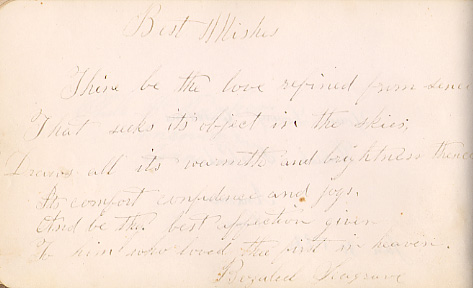 Best Wishes
Thine be the love refined from sense
That seeks its object in the skies,
Draws all its warmth and brightness thence
Its comfort confidence and joys.
And be thy best affection given
To him who loved the first in heaven.
Seagrave